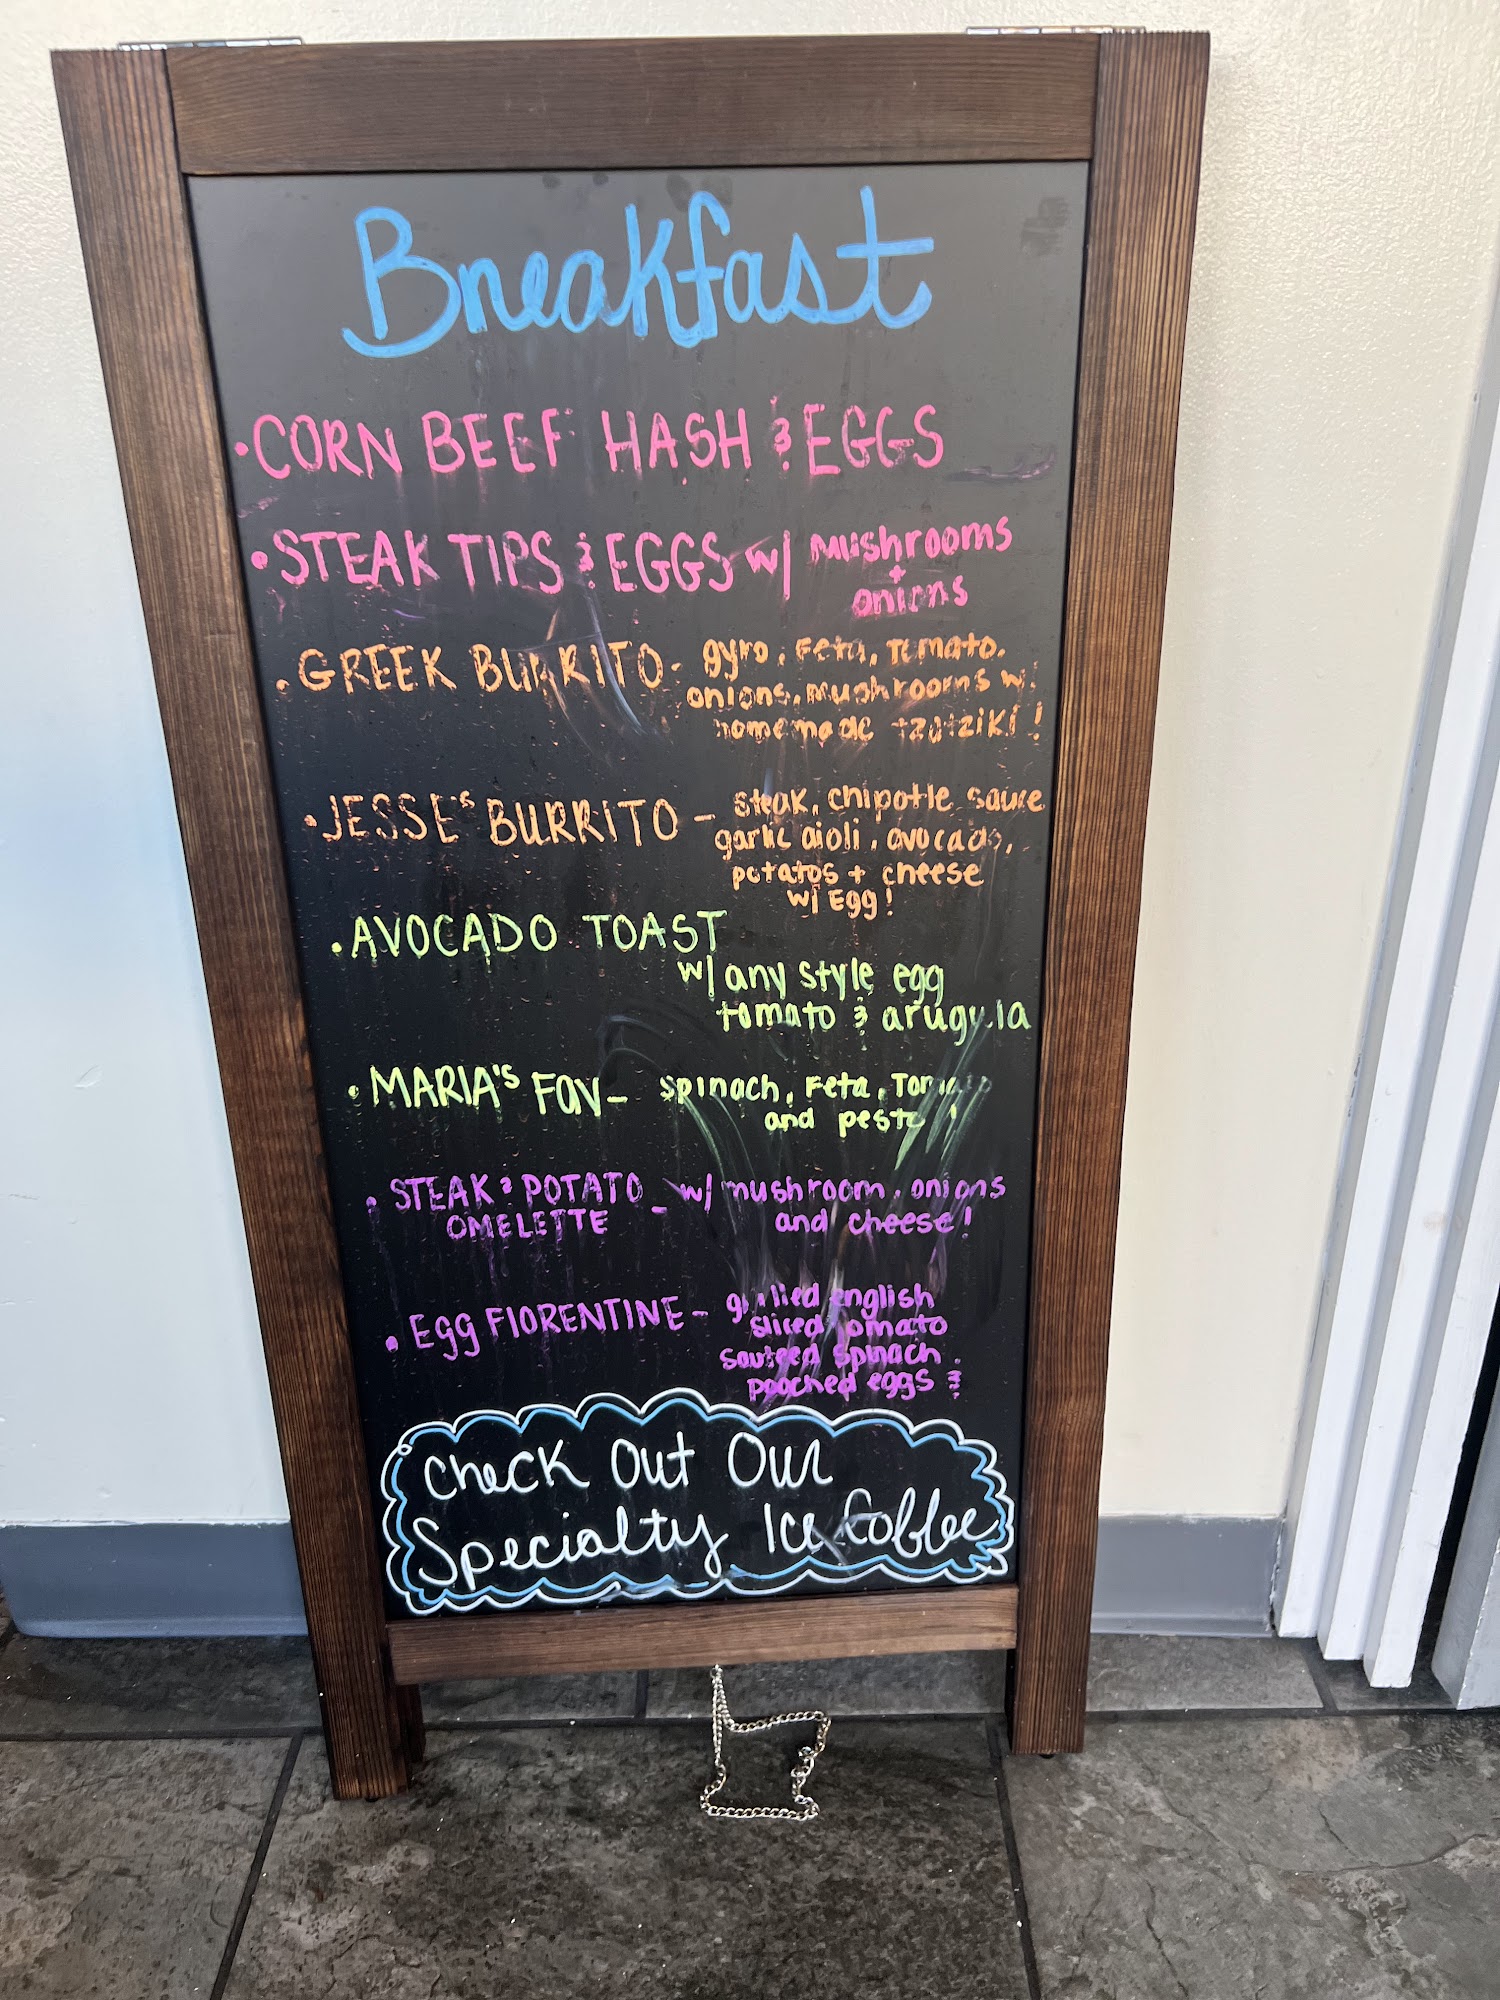 Breakfast
• CORN BEEF HASH & EGGS
• STEAK TIPS & EGGS w/ mushrooms
+
onions
• GREEK BURRITO - gyro, Feta, Tomato,
onions, mushrooms w/
homemade tzatziki!
• JESSE'S BURRITO - steak, chipotle sauce
garlic aioli, avocado,
potatos + cheese
w/ Egg!
• AVOCADO TOAST
w/ any style egg
tomato & arugula
• MARIA'S FAV - spinach, Feta, Tomato
and pesto!
• STEAK & POTATO - w/ mushroom, onions
OMELETTE and cheese!
• EGG FlORENTINE - grilled english
sliced tomato
sauteed spinach
pooched eggs &
Check Out Our
Specialty Ice Coffee